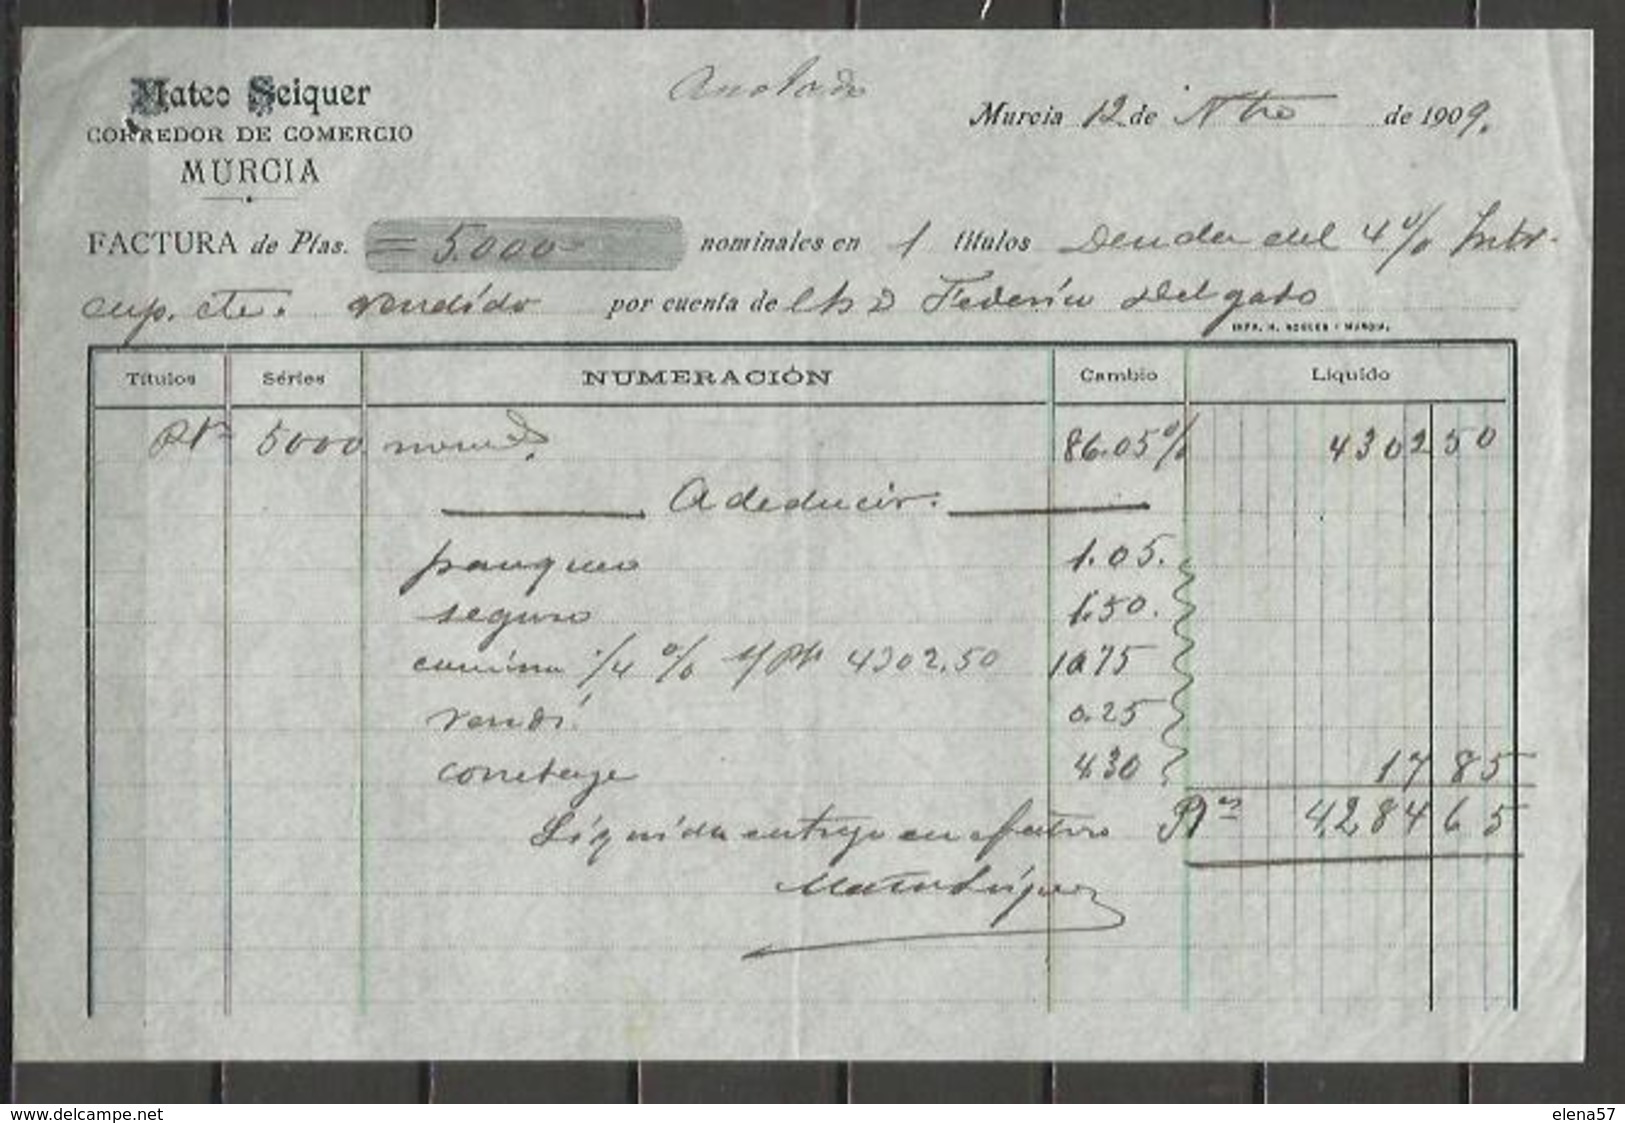 Mateo Seiquer
Anotado
Murcia 12 de Nbre de 1909.
CORREDOR DE COMERCIO
MURCIA
FACTURA de Ptas. =5.000= nominales en 1 títulos Deuda del 4% Intr.
cup. cte. vendido por cuenta de D Federico Delgado
IMP. H. NOGUES - MURCIA.
Títulos Séries NUMERACIÓN Cambio Líquido
Pts 5000 nomes. 86.05% 4302 50
A deducir.
franqueo 1.05.
seguro 1.50.
comisión 1/4 % s/ Pts 4302.50 10.75
vendí 0.25
corretaje 4.30 17 85
Líquido entrego en efectivo Ptas 4284 65
Mateo Seiquer
www.delcampe.net
elena57